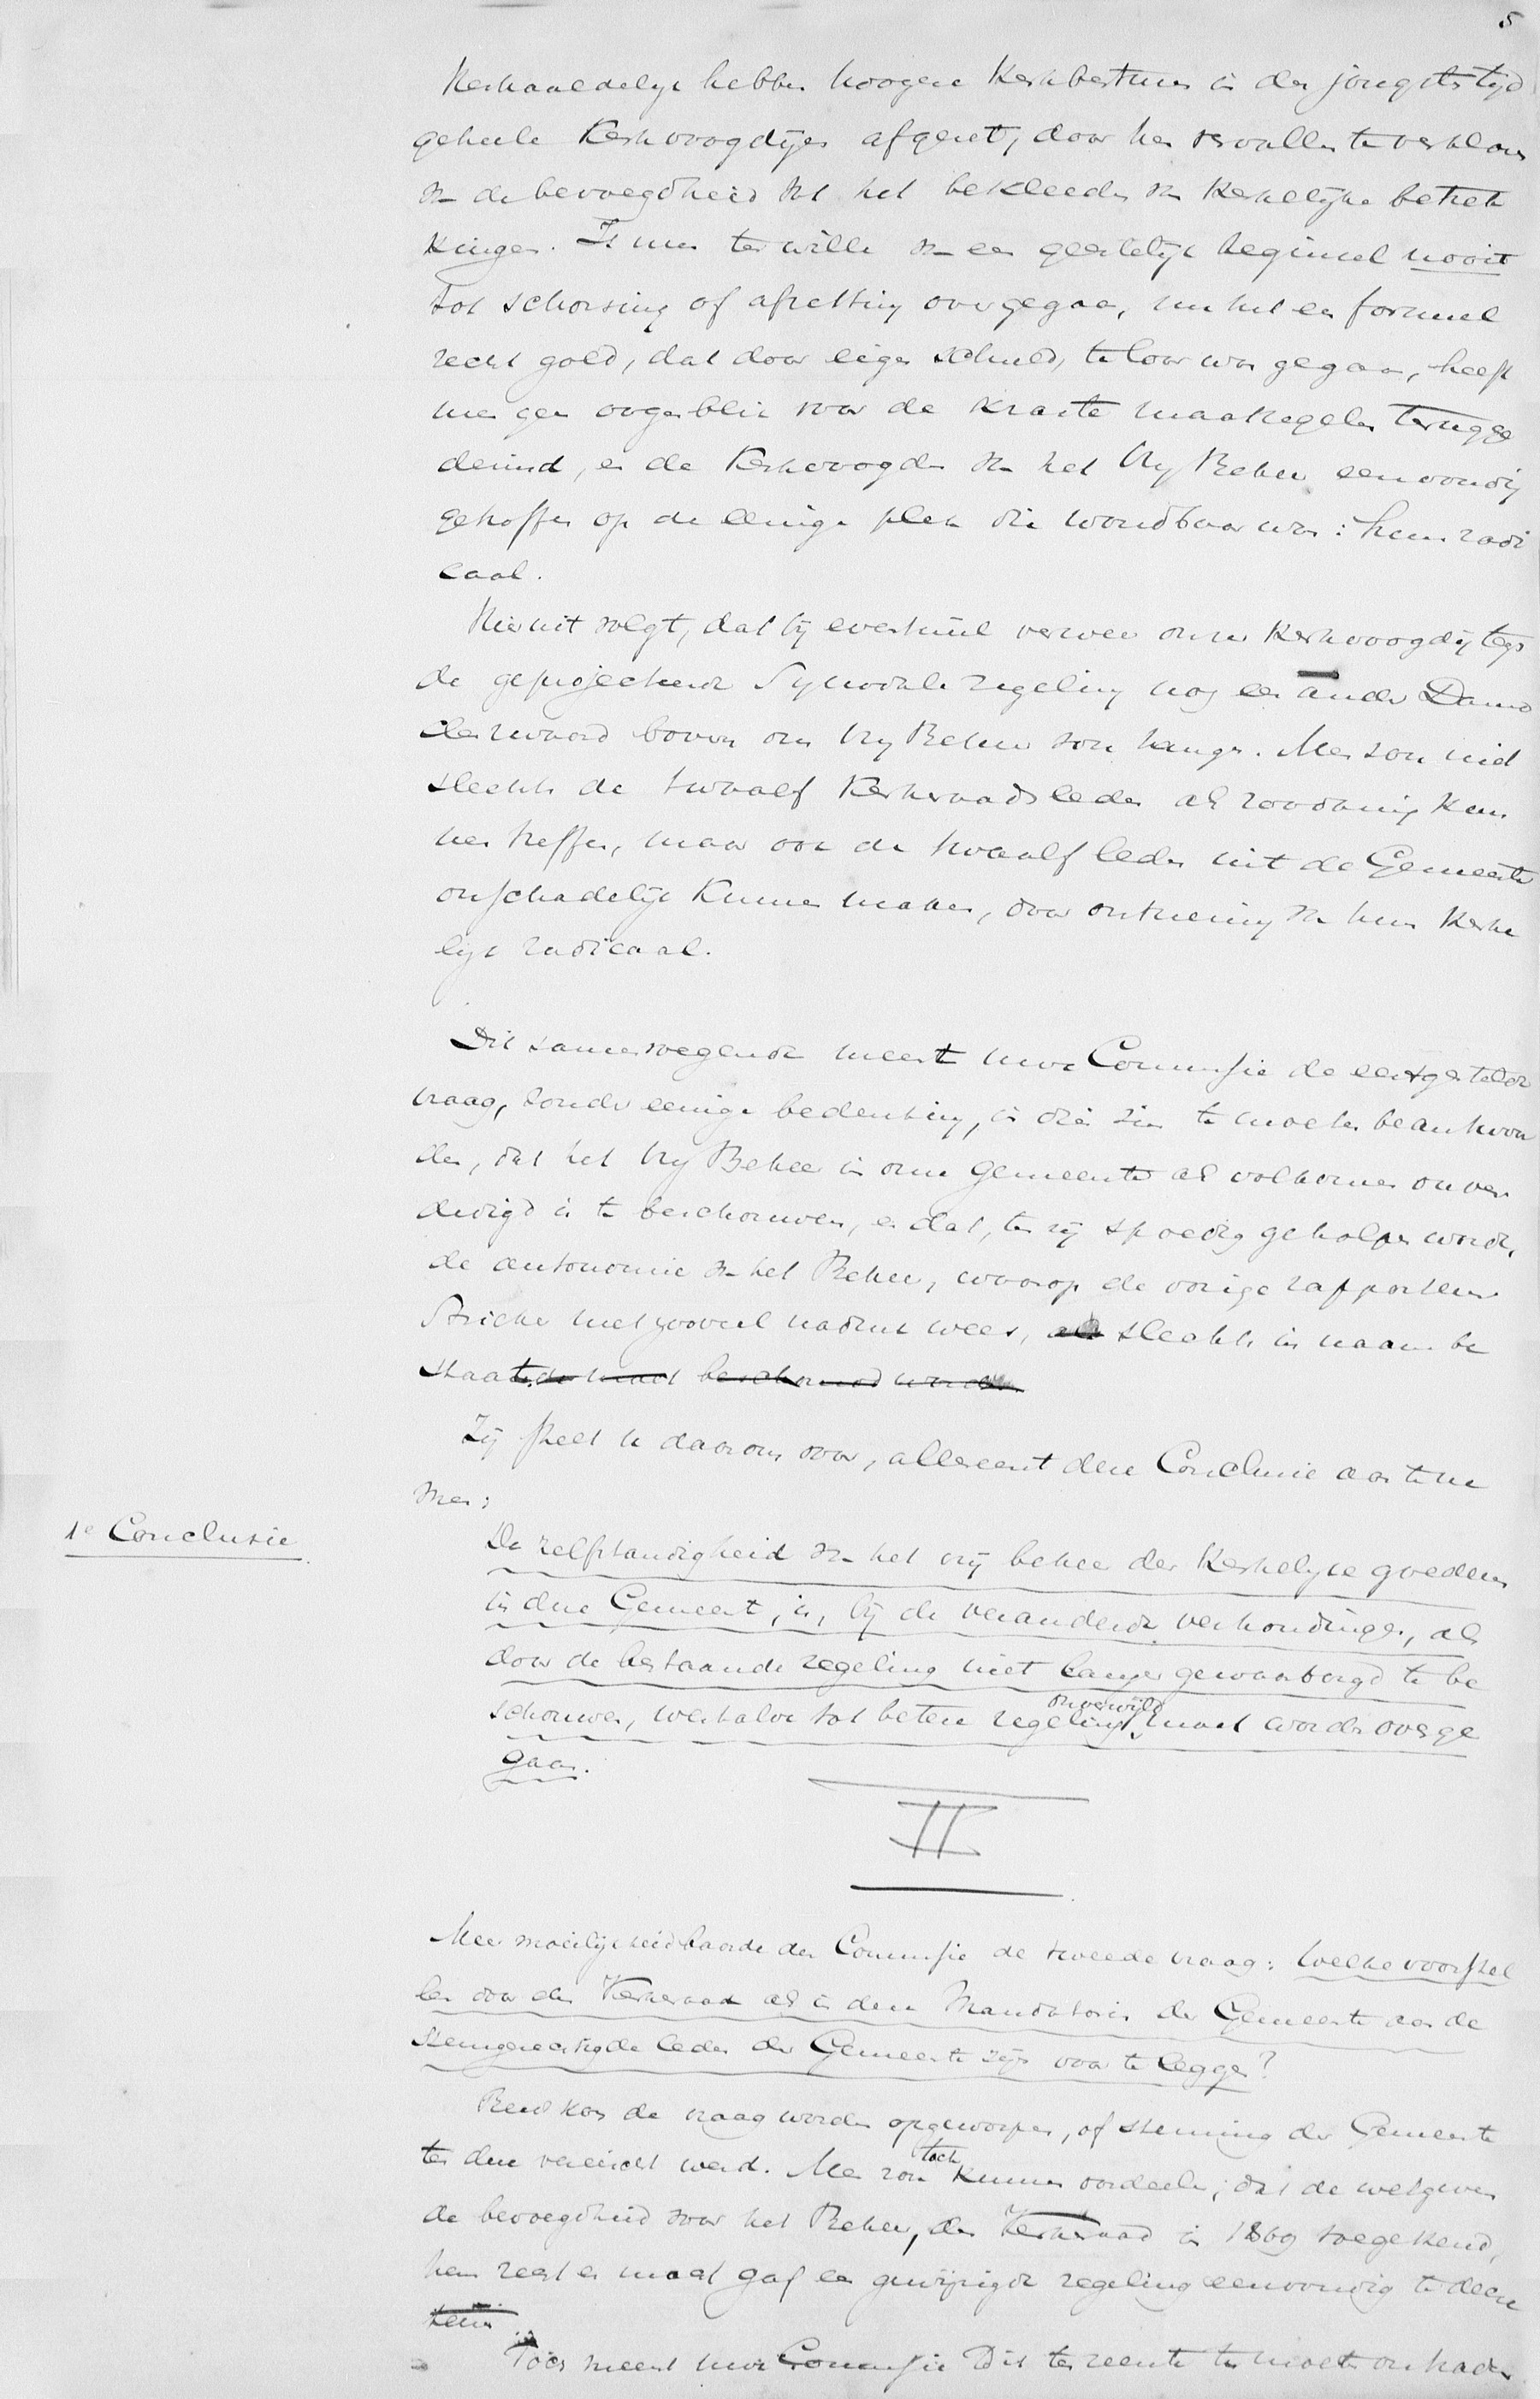 5
Herhaaldelijk hebben hoogere Kerkbesturen in den jongsten tijd
geheele Kerkvoogdijen afgezet, door hen vervallen te verklaren
van de bevoegdheid tot het bekleeden van Kerkelijke betrek
kingen. Is men ter wille van een geestelijk beginsel nooit
tot schorsing of afzetting overgegaan, nu het een formeel
recht gold, dat door eigen schuld, te loor was gegaan, heeft
men geen oogenblik voor de krasste maatregelen terugge
deinsd, en de Kerkvoogden van het Vrij Beheer eenvoudig
getroffen op de eenige plek die wondbaar was: hun radi
caal.
Hieruit volgt, dat bij eventueel verweer onzer Kerkvoogdij tegen
de geprojecteerde Synodale regeling nog een ander Damo
cleszwaard boven ons Vrij Beheer zou hangen. Men zou niet
slechts de twaalf Kerkeraadsleden als zoodanig kun
nen treffen, maar ook de twaalf leden uit de Gemeente
onschadelijk kunnen maken, door ontneming van hun Kerke
lijk radicaal.
Dit samenvoegende meent uwe Commissie de eerstgestelde
vraag, zonder eenige bedenking, in dien zin te moeten beantwoor
den, dat het Vrij Beheer in onze Gemeente als volkomen onver
dedigd is te beschouwen, en dat, tenzij spoedig geholpen worde,
de autonomie van het Beheer, waarop de vorige rapporteur
Stricker met zooveel nadruk wees, als slechts in naam be
staande moet beschouwd worden
Zij stelt u daarom voor, allereerst deze Conclusie aan te ne
men:
1e Conclusie
De zelfstandigheid van het vrij beheer der Kerkelijke goederen
in deze Gemeente, is, bij de veranderde verhoudingen, als
door de bestaande regeling niet langer gewaarborgd te be
schouwen, weshalve tot betere regeling onverwijld moet worden overge
gaan.
II
Meer moeilijkheid baarde der Commissie de tweede vraag: Welke voorstel
len door den Kerkeraad als in deze Mandataris der Gemeente aan de
stemgerechtigde leden der Gemeente zijn voor te leggen?
Reeds kon de vraag worden opgeworpen, of stemming der Gemeente
ten deze vereischt werd. Men zou toch kunnen oordeelen, dat de wetgever
de bevoegdheid voor het Beheer, den Kerkeraad in 1869 toegekend,
hem recht en macht gaf een gewijzigde regeling eenvoudig te decre
teeren.
Toch meent uwe Commissie dit ten zeerste te moeten ontraden